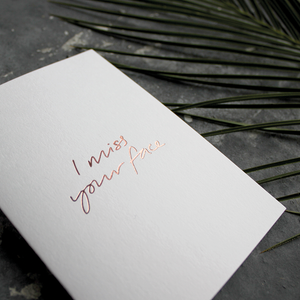 I miss
your face